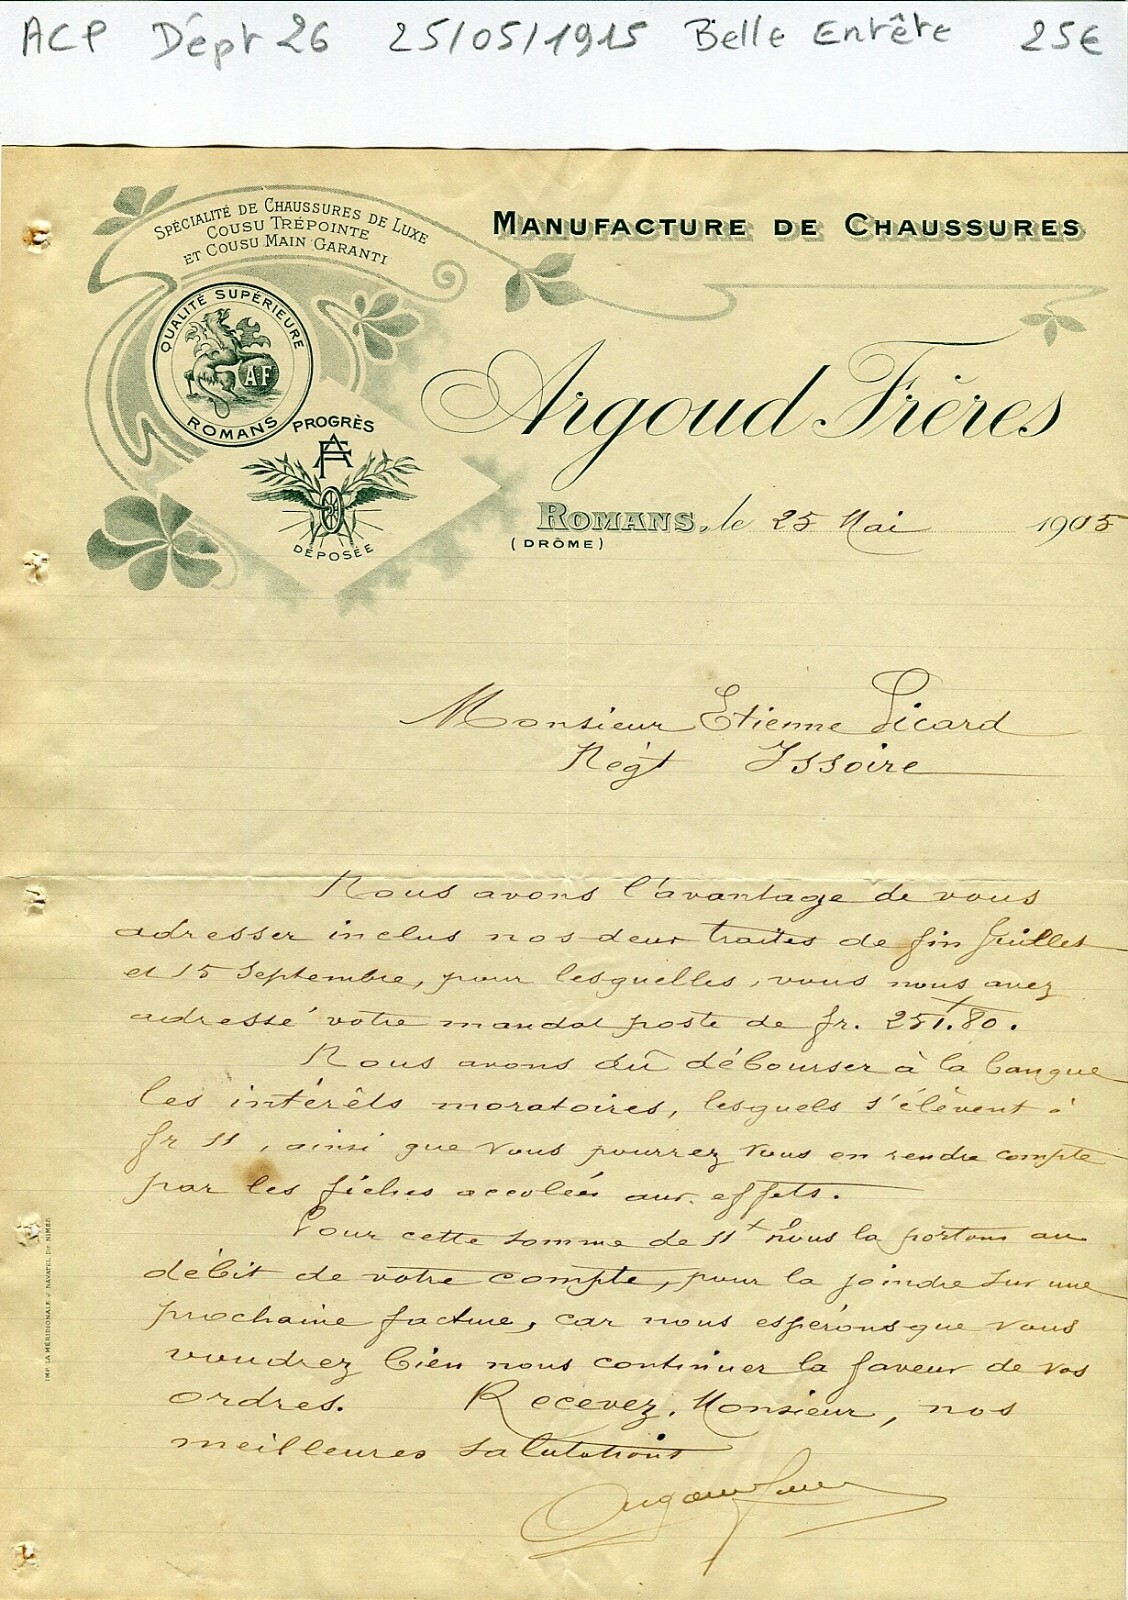 ACP Dépt 26 25/05/1915 Belle Entête 25€
SPÉCIALITÉ DE CHAUSSURES DE LUXE
COUSU TRÉPOINTE
ET COUSU MAIN GARANTI
MANUFACTURE DE CHAUSSURES
QUALITÉ SUPÉRIEURE
AF
ROMANS
PROGRÈS
AF
DÉPOSÉE
Argoud Frères
ROMANS, le 25 Mai 1905
(DRÔME)
Monsieur Etienne Picard
Négt Issoire
Nous avons l'avantage de vous
adresser inclus nos deux traites de fin Juillet
et 15 Septembre, pour lesquelles, vous nous avez
adressé votre mandat poste de fr. 251.80.
Nous avons dû débourser à la banque
les intérêts moratoires, lesquels s'élèvent à
fr 11, ainsi que vous pourrez vous en rendre compte
par les fiches accolées aux effets.
Pour cette somme de 11 nous la portons au
débit de votre compte, pour la joindre sur une
prochaine facture, car nous espérons que vous
voudrez bien nous continuer la faveur de vos
ordres. Recevez, Monsieur, nos
meilleures salutations
Argoud frères
IMP. LA MÉRIDIONALE J. NAVATEL DIR NIMES